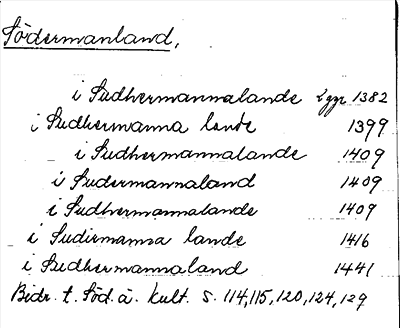 Södermanland,
i Sudhermannalande 2 ggr 1382
i Sudhermanna lande 1399
i Sudhermannalande 1409
i Sudermannaland 1409
i Sudhermannalande 1409
i Sudirmanna lande 1416
i Sudhermannaland 1441
Bidr. t. Söd. ä. kult. s. 114,115,120,124,129